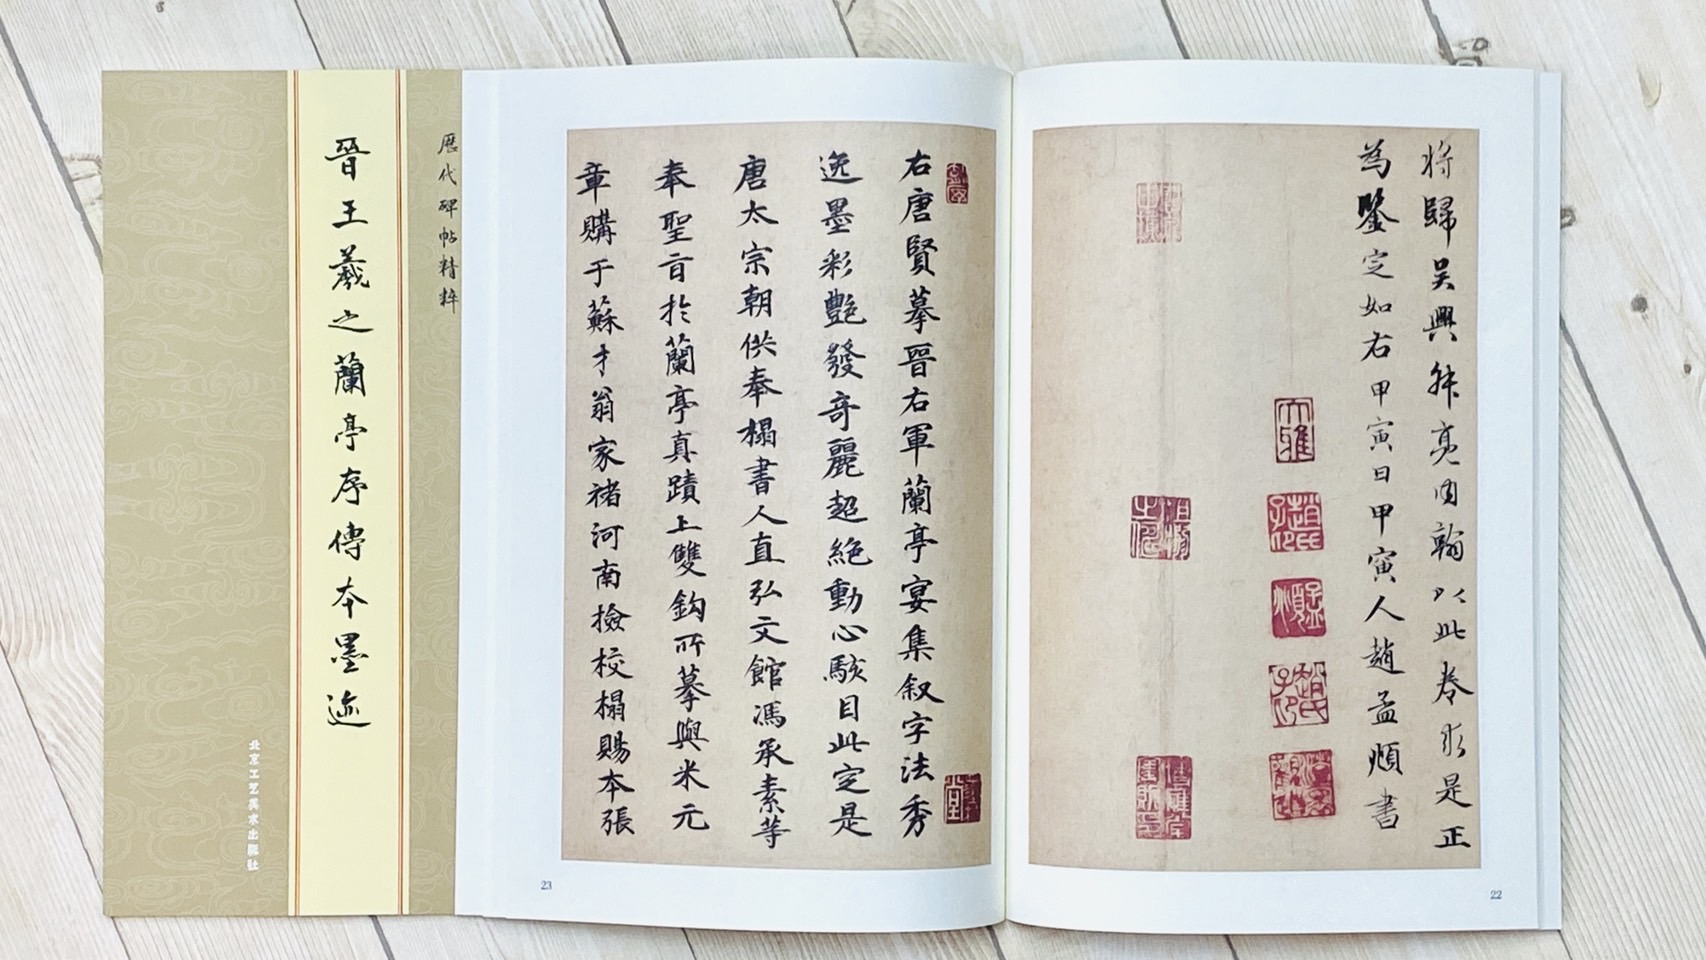 将歸吴興舜亮囙翰以此卷求是正
為鑒定如右甲寅日甲寅人趙孟頫書
大雅
趙氏子昂
趙氏子昂
22
右唐賢摹晉右軍蘭亭宴集叙字法秀
逸墨彩艷發奇麗超絶動心駭目此定是
唐太宗朝供奉榻書人直弘文館馮承素等
奉聖旨於蘭亭真蹟上雙鈎所摹與米元
章購于蘇才翁家褚河南撿校榻賜本張
23
歷代碑帖精粹
晉王羲之蘭亭序傳本墨迹
北京工艺美术出版社